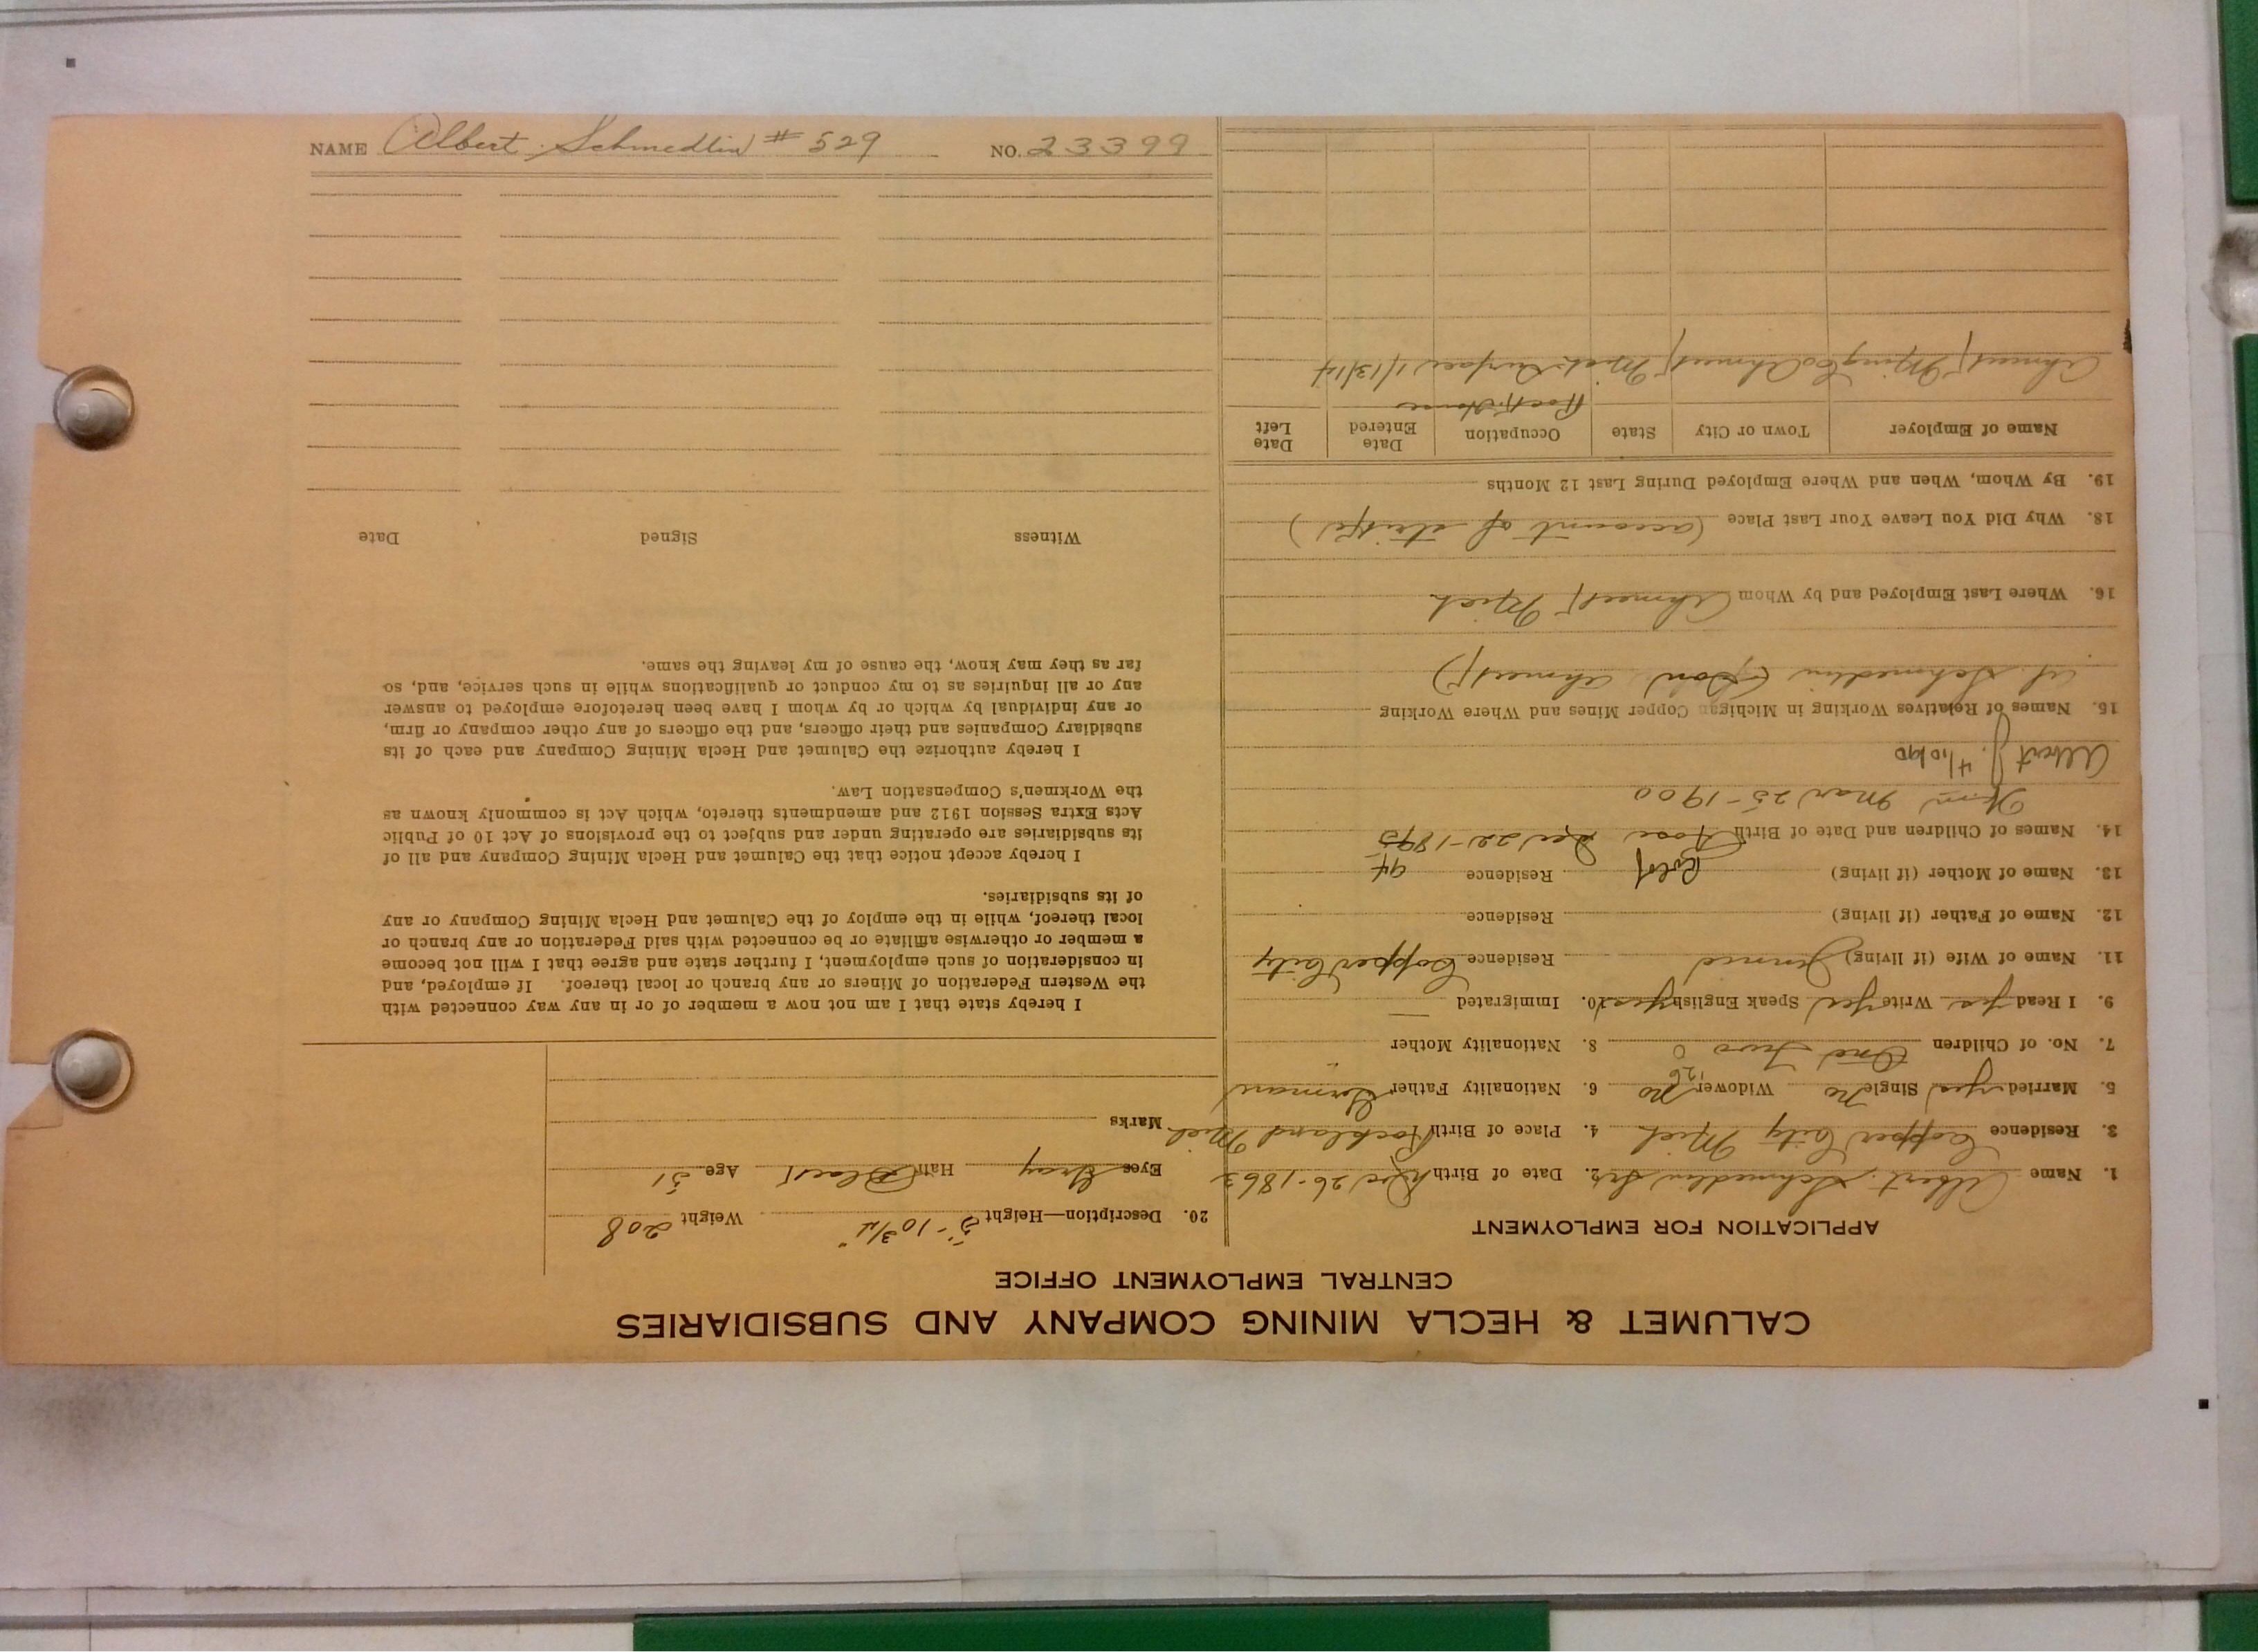 CALUMET & HECLA MINING COMPANY AND SUBSIDIARIES
CENTRAL EMPLOYMENT OFFICE
APPLICATION FOR EMPLOYMENT
1. Name Albert Schmedlin Sr. 2. Date of Birth Dec 26-1863
3. Residence Copper City Mich 4. Place of Birth Rockland Mich
5. Married yes Single no Widower no 6. Nationality Father German
7. No. of Children One Two 8. Nationality Mother
9. I Read yes Write yes Speak English yes 10. Immigrated —
11. Name of Wife (if living) Jennie Residence Copper City
12. Name of Father (if living) Residence
13. Name of Mother (if living) Residence
14. Names of Children and Date of Birth Rose Dec 22-1895
94
Mar 25-1900
Albert J. 4/10/90
15. Names of Relatives Working in Michigan Copper Mines and Where Working
Al. Schmedlin (Son) Ahmeek)
16. Where Last Employed and by Whom Ahmeek Mich
18. Why Did You Leave Your Last Place (account of strike)
19. By Whom, When and Where Employed During Last 12 Months
Name of Employer Town or City State Occupation Date Entered Date Left
Rock House
Ahmeek Ming Co Ahmeek Mich Surface 1/13/14
20. Description—Height 5'-10 3/4" Weight 208
Eyes Gray Hair Black Age 51
Marks
I hereby state that I am not now a member of or in any way connected with
the Western Federation of Miners or any branch or local thereof. If employed, and
in consideration of such employment, I further state and agree that I will not become
a member or otherwise affiliate or be connected with said Federation or any branch or
local thereof, while in the employ of the Calumet and Hecla Mining Company or any
of its subsidiaries.
I hereby accept notice that the Calumet and Hecla Mining Company and all of
its subsidiaries are operating under and subject to the provisions of Act 10 of Public
Acts Extra Session 1912 and amendments thereto, which Act is commonly known as
the Workmen's Compensation Law.
I hereby authorize the Calumet and Hecla Mining Company and each of its
subsidiary Companies and their officers, and the officers of any other company or firm,
or any individual by which or by whom I have been heretofore employed to answer
any or all inquiries as to my conduct or qualifications while in such service, and, so
far as they may know, the cause of my leaving the same.
Witness Signed Date
NAME Albert Schmedlin #529 NO. 23399